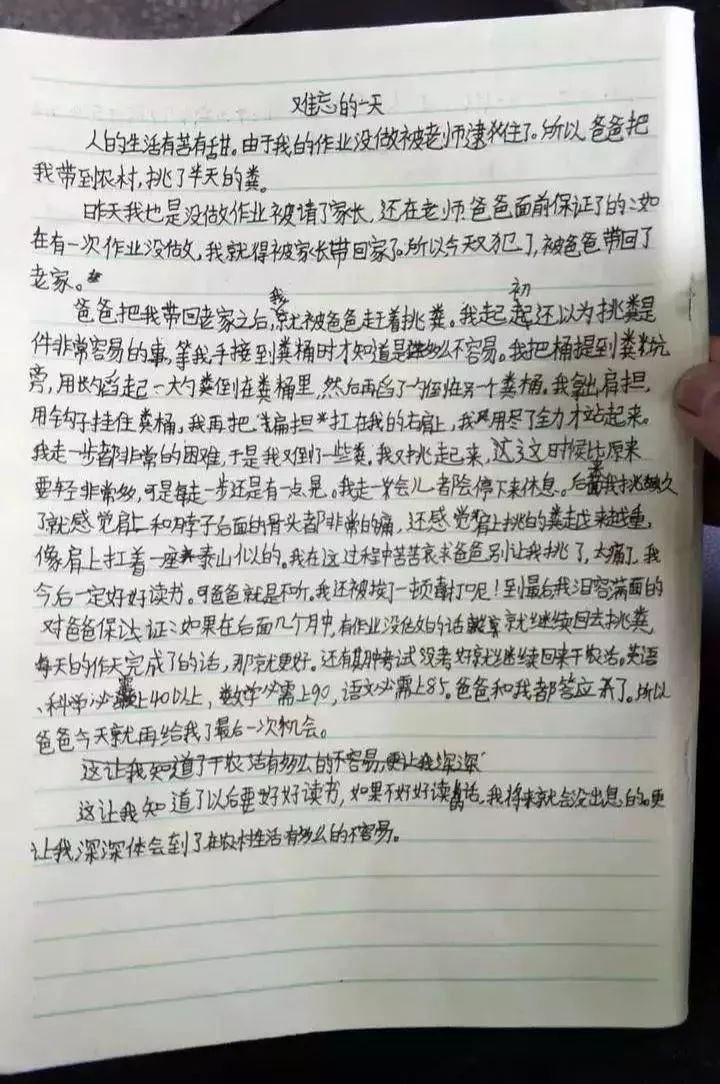 难忘的一天
人的生活有苦有甜。由于我的作业没做被老师逮犯住了。所以爸爸把
我带到农村,挑了半天的粪。
昨天我也是没做作业被请了家长,还在老师.爸爸面前保证了的:如
在有一次作业没做,我就得被家长带回家了。所以今天又犯了,被爸爸带回了
老家。
爸爸把我带回老家之后,我就被爸爸赶着挑粪。我起初还以为挑粪是
件非常容易的事,等我手接到粪桶时才知道是多么不容易。我把桶提到粪坑
旁,用大勺舀起一大勺粪倒在粪桶里,然后再舀了一勺倒在另一个粪桶。我拿出肩担,
用钩子挂住粪桶。我再把扁担扛在我的右肩上,我用尽了全力才站起来。
我走一步都非常的困难,于是我又倒了一些粪。我又挑起来,这时候比原来
要轻非常多,可是每走一步还是有一点晃。我走一会儿都会停下来休息。后面我挑久
了就感觉肩上和脖子后面的骨头都非常的痛,还感觉肩上挑的粪越来越重,
像肩上扛着一座泰山似的。我在这过程中苦苦哀求爸爸别让我挑了,太痛了,我
今后一定好好读书。可爸爸就是不听。我还被挨了一顿毒打呢!到最后我泪容满面的
对爸爸保证:如果在后面几个月中,有作业没做的话就继续回去挑粪,
每天的作天完成了的话,那就更好。还有期中考试没考好就继续回来干农活。英语
、科学必需上40以上,数学必需上90,语文必需上85。爸爸和我都答应了。所以
爸爸今天就再给我了最后一次机会。
这让我知道了干农活有多么的不容易,更让我深深
这让我知道了以后要好好读书,如果不好好读的话,我将来就会没出息的。更
让我深深体会到了在农村生活有多么的不容易。